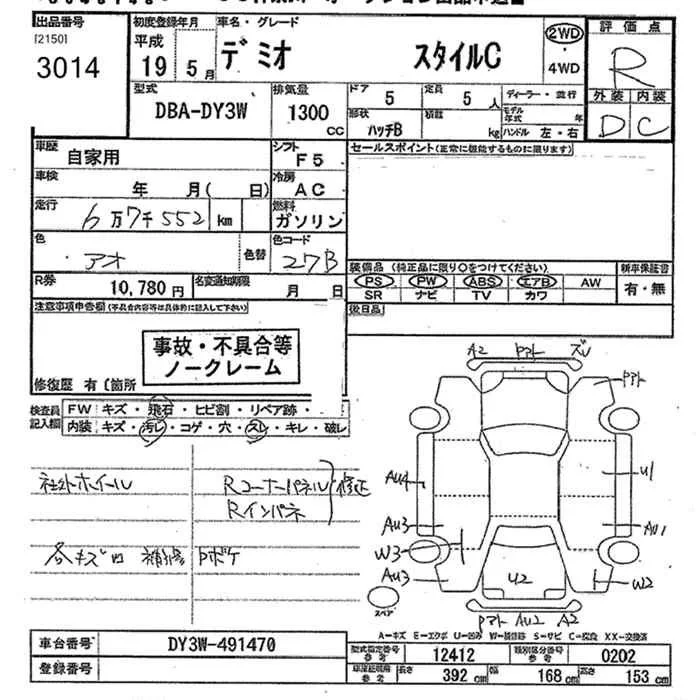 出品番号 初度登録年月 車名・グレード 評価点
[2150] 平成 デミオ スタイルC 2WD R
3014 19 5月 4WD
型式 排気量 ドア 5 定員 5人 ディーラー・並行 外装 内装
DBA-DY3W 1300cc 形状 ハッチB 積載 kg モデル年式 年 D C
ハンドル 左・右
車歴 自家用 シフト F5 セールスポイント(正常に機能するものに限ります)
車検 年 月( 日) 冷房 AC
走行 6万7千552 km 燃料 ガソリン
色 アオ 色替 色コード 27B
装備品 (純正品に限り○をつけてください) 新車保証書
PS PW ABS エアB AW 有・無
SR ナビ TV カワ
R券 10,780円 名変通知期限 月 日
後日品
注意事項申告欄(不具合内容等は具体的に記入して下さい)
事故・不具合等
ノークレーム
修復歴 有〔箇所
検査員 FW キズ・飛石・ヒビ割・リペア跡・
記入欄 内装 キズ・汚レ・コゲ・穴・スレ・キレ・破レ
A2 Pアト ズレ
Pアト
社外ホイール Rコーナーパネル 修正
Rインパネ
AU4 U1
AU3 AU1
各キズ凹 補修 Pボケ
W3
AU3 U2 W2
スペア
Pアト AU2 A2
A－キズ E－エクボ U－凹み W－補修跡 S－サビ C－腐食 XX－交換済
車台番号 DY3W-491470 型式指定番号 参考 12412 類別区分番号 参考 0202
登録番号 車庫証明用 参考 長さ 392cm 幅 168cm 高さ 153cm